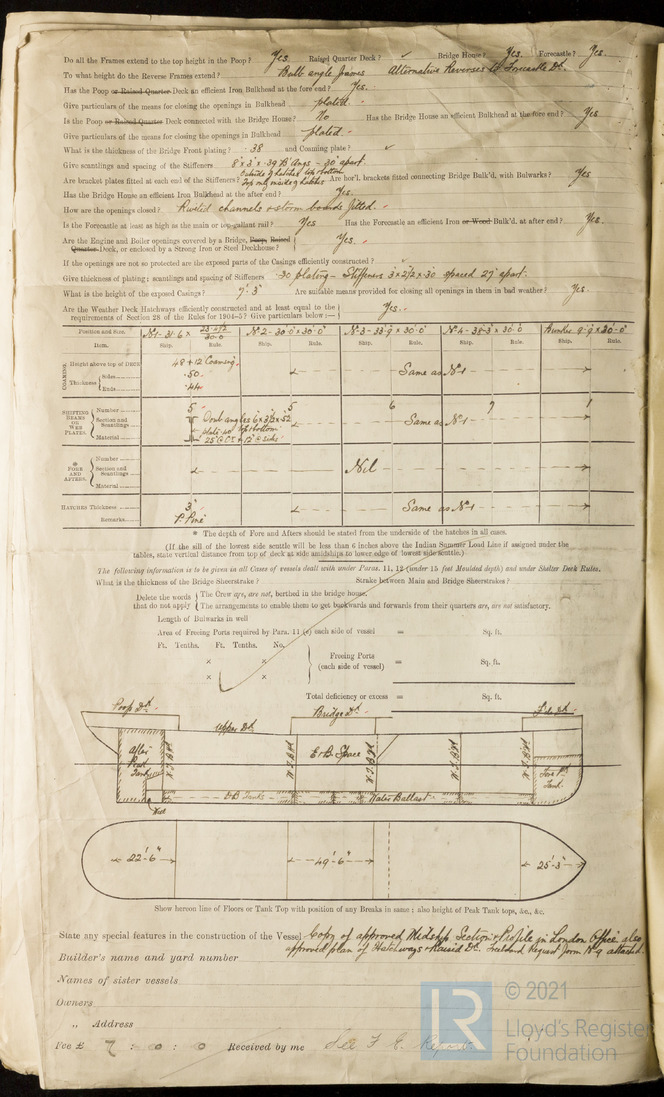 Do all the Frames extend to the top height in the Poop? Yes. Raised Quarter Deck? ✓ Bridge House? Yes. Forecastle? Yes.
To what height do the Reverse Frames extend? Bulb angle frames Alternative Reverses to Forecastle Dk.
Has the Poop or Raised Quarter Deck an efficient Iron Bulkhead at the fore end? Yes.
Give particulars of the means for closing the openings in Bulkhead plated.
Is the Poop or Raised Quarter Deck connected with the Bridge House? No Has the Bridge House an efficient Bulkhead at the fore end? Yes
Give particulars of the means for closing the openings in Bulkhead plated.
What is the thickness of the Bridge Front plating? .38 and Coaming plate? ✓
Give scantlings and spacing of the Stiffeners 8" x 3" x .39 B. Angs - 30" apart.
Are bracket plates fitted at each end of the Stiffeners? Outside of hatches top & bottom Top only inside of hatches Are hor'l. brackets fitted connecting Bridge Bulk'd, with Bulwarks? Yes
Has the Bridge House an efficient Iron Bulkhead at the after end? Yes.
How are the openings closed? Riveted channels & storm boards fitted.
Is the Forecastle at least as high as the main or top-gallant rail? Yes Has the Forecastle an efficient Iron or Wood Bulk'd. at after end? Yes.
Are the Engine and Boiler openings covered by a Bridge, Poop, Raised
Quarter-Deck, or enclosed by a Strong Iron or Steel Deckhouse? Yes.
If the openings are not so protected are the exposed parts of the Casings efficiently constructed? ✓
Give thickness of plating; scantlings and spacing of Stiffeners .30 plating - Stiffeners 3 x 2½ x .30 spaced 27" apart.
What is the height of the exposed Casings? 7'.3" Are suitable means provided for closing all openings in them in bad weather? Yes
Are the Weather Deck Hatchways efficiently constructed and at least equal to the
requirements of Section 28 of the Rules for 1904-5? Give particulars below:— Yes.
Position and Size. No 1 - 31.6 x 30.0 No 2 - 30'0 x 30'0" No 3 - 33'9 x 30'0" No 4 - 38'3" x 30'0" Bunker 9'9 x 30'0"
Item. Ship. Rule. Ship. Rule. Ship. Rule. Ship. Rule. Ship. Rule.
COAMING. Height above top of DECK 48 + 12 Coaming.
Thickness Sides .50 Same as No 1
Ends .44
SHIFTING BEAMS OR WEB PLATES. Number 5 5 6 7 1
Section and Scantlings Doub angles 6 x 3½ x .52 Same as No 1
plate top & bottom
Material 25" @ CL + 12" @ sides
* FORE AND AFTERS. Number
Section and Scantlings Nil
Material
HATCHES Thickness 3" Same as No 1
Remarks P. Pine
* The depth of Fore and Afters should be stated from the underside of the hatches in all cases.
(If the sill of the lowest side scuttle will be less than 6 inches above the Indian Summer Load Line if assigned under the
tables, state vertical distance from top of deck at side amidships to lower edge of lowest side scuttle.)
The following information is to be given in all Cases of vessels dealt with under Para. 11, 12 (under 15 feet Moulded depth) and under Shelter Deck Rules.
What is the thickness of the Bridge Sheerstrake? Strake between Main and Bridge Sheerstrakes?
Delete the words that do not apply The Crew are, are not, berthed in the bridge house.
The arrangements to enable them to get backwards and forwards from their quarters are, are not satisfactory.
Length of Bulwarks in well
Area of Freeing Ports required by Para. 11 (e) each side of vessel = Sq. ft.
Ft. Tenths. Ft. Tenths. No.
× × Freeing Ports
× × (each side of vessel) = Sq. ft.
Total deficiency or excess = Sq. ft.
Poop Dk. Bridge Dk. F'cle Dk.
Upper Dk.
After Peak Tank W.T.Bhd W.T.Bhd E & B. Space W.T.Bhd W.T.Bhd W.T.Bhd Fore Pk Tank.
D.B. Tanks Water Ballast
Well
22'-6" 49'-6" 25'-3"
Show hereon line of Floors or Tank Top with position of any Breaks in same; also height of Peak Tank tops, &c., &c.
State any special features in the construction of the Vessel Copy of approved Midship Section & Profile in London Office also
approved plan of Hatchways & Raised Dk. Freeboard Request form No 9 attached.
Builder's name and yard number
Names of sister vessels
Owners
„ Address
Fee £ 7 : 0 : 0 Received by me See F. E. Report.
© 2021
Lloyd's Register
Foundation
LR